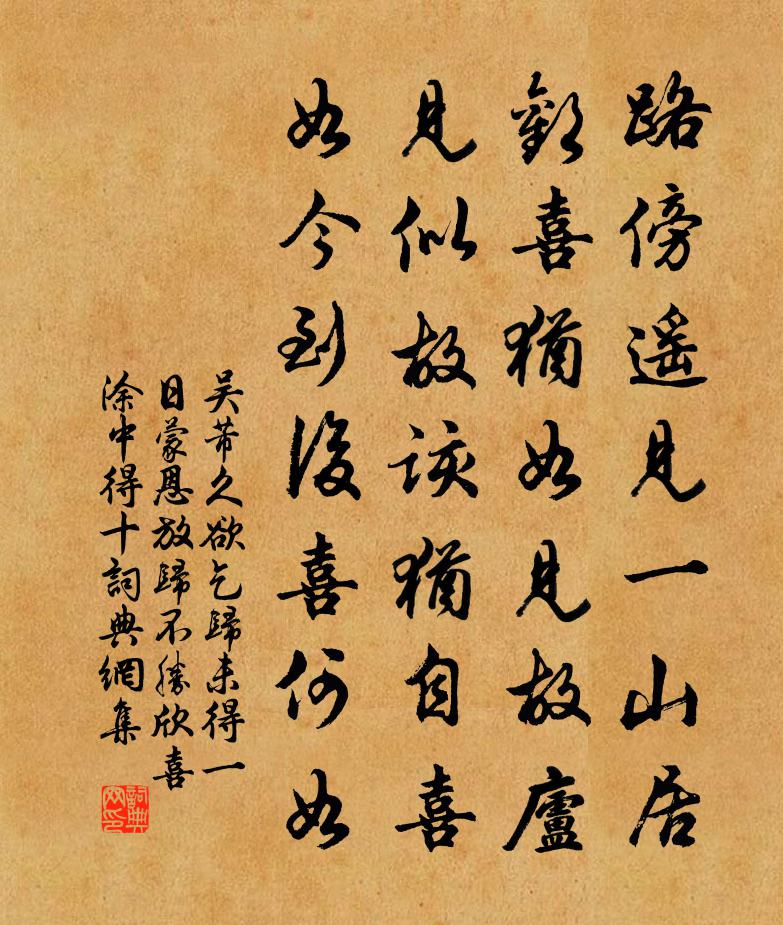 路傍遥見一山居
歡喜猶如見故廬
見似故該猶自喜
如今到後喜何如
吴芾久欲乞歸未得一
日蒙恩放歸不勝欣喜
涂中得十詞典網集
詞典
网印